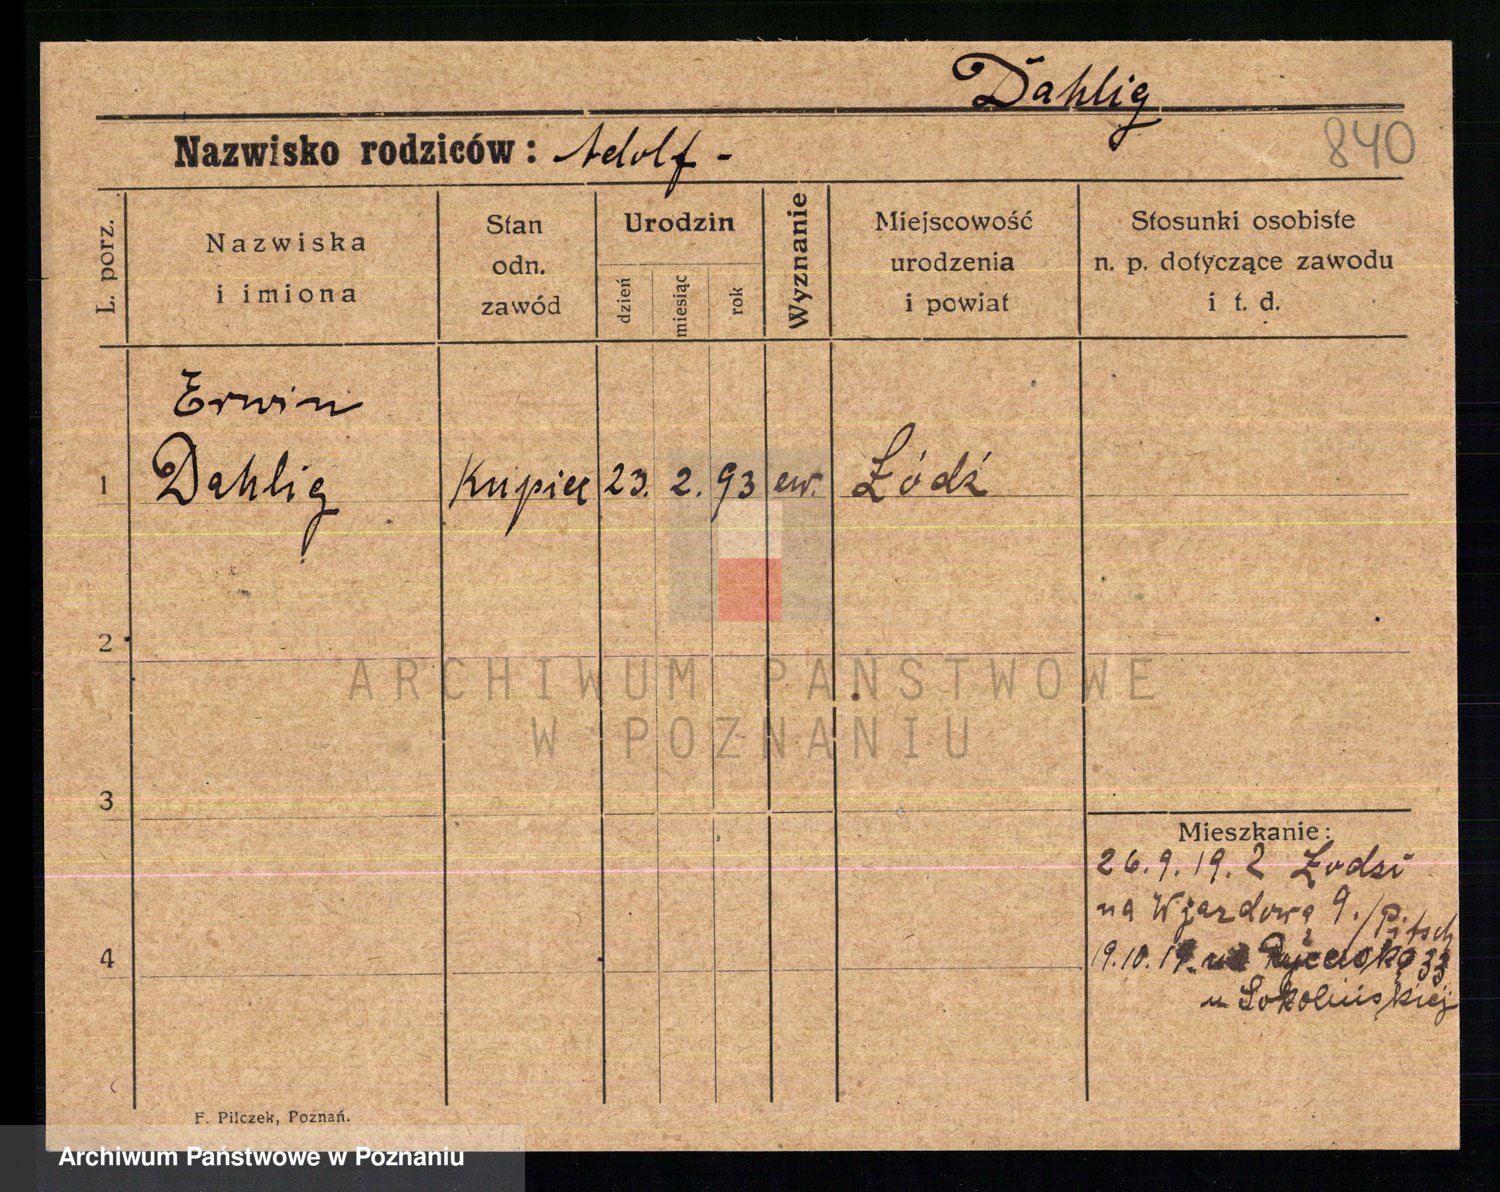 Dahlig
Nazwisko rodziców : Adolf -
840
L. porz.
Nazwiska
i imiona
Stan
odn.
zawód
Urodzin
dzień
miesiąc
rok
Wyznanie
Miejscowość
urodzenia
i powiat
Stosunki osobiste
n. p. dotyczące zawodu
i t. d.
Erwin
1 Dahlig Kupiec 23. 2. 93 ew. Łódź
2
ARCHIWUM PAŃSTWOWE
W POZNANIU
3
Mieszkanie :
26.9.19. z Łodzi
na Wjazdową 9./p.
19.10.19.
4
u Sokolińskiej
F. Pilczek, Poznań.
Archiwum Państwowe w Poznaniu